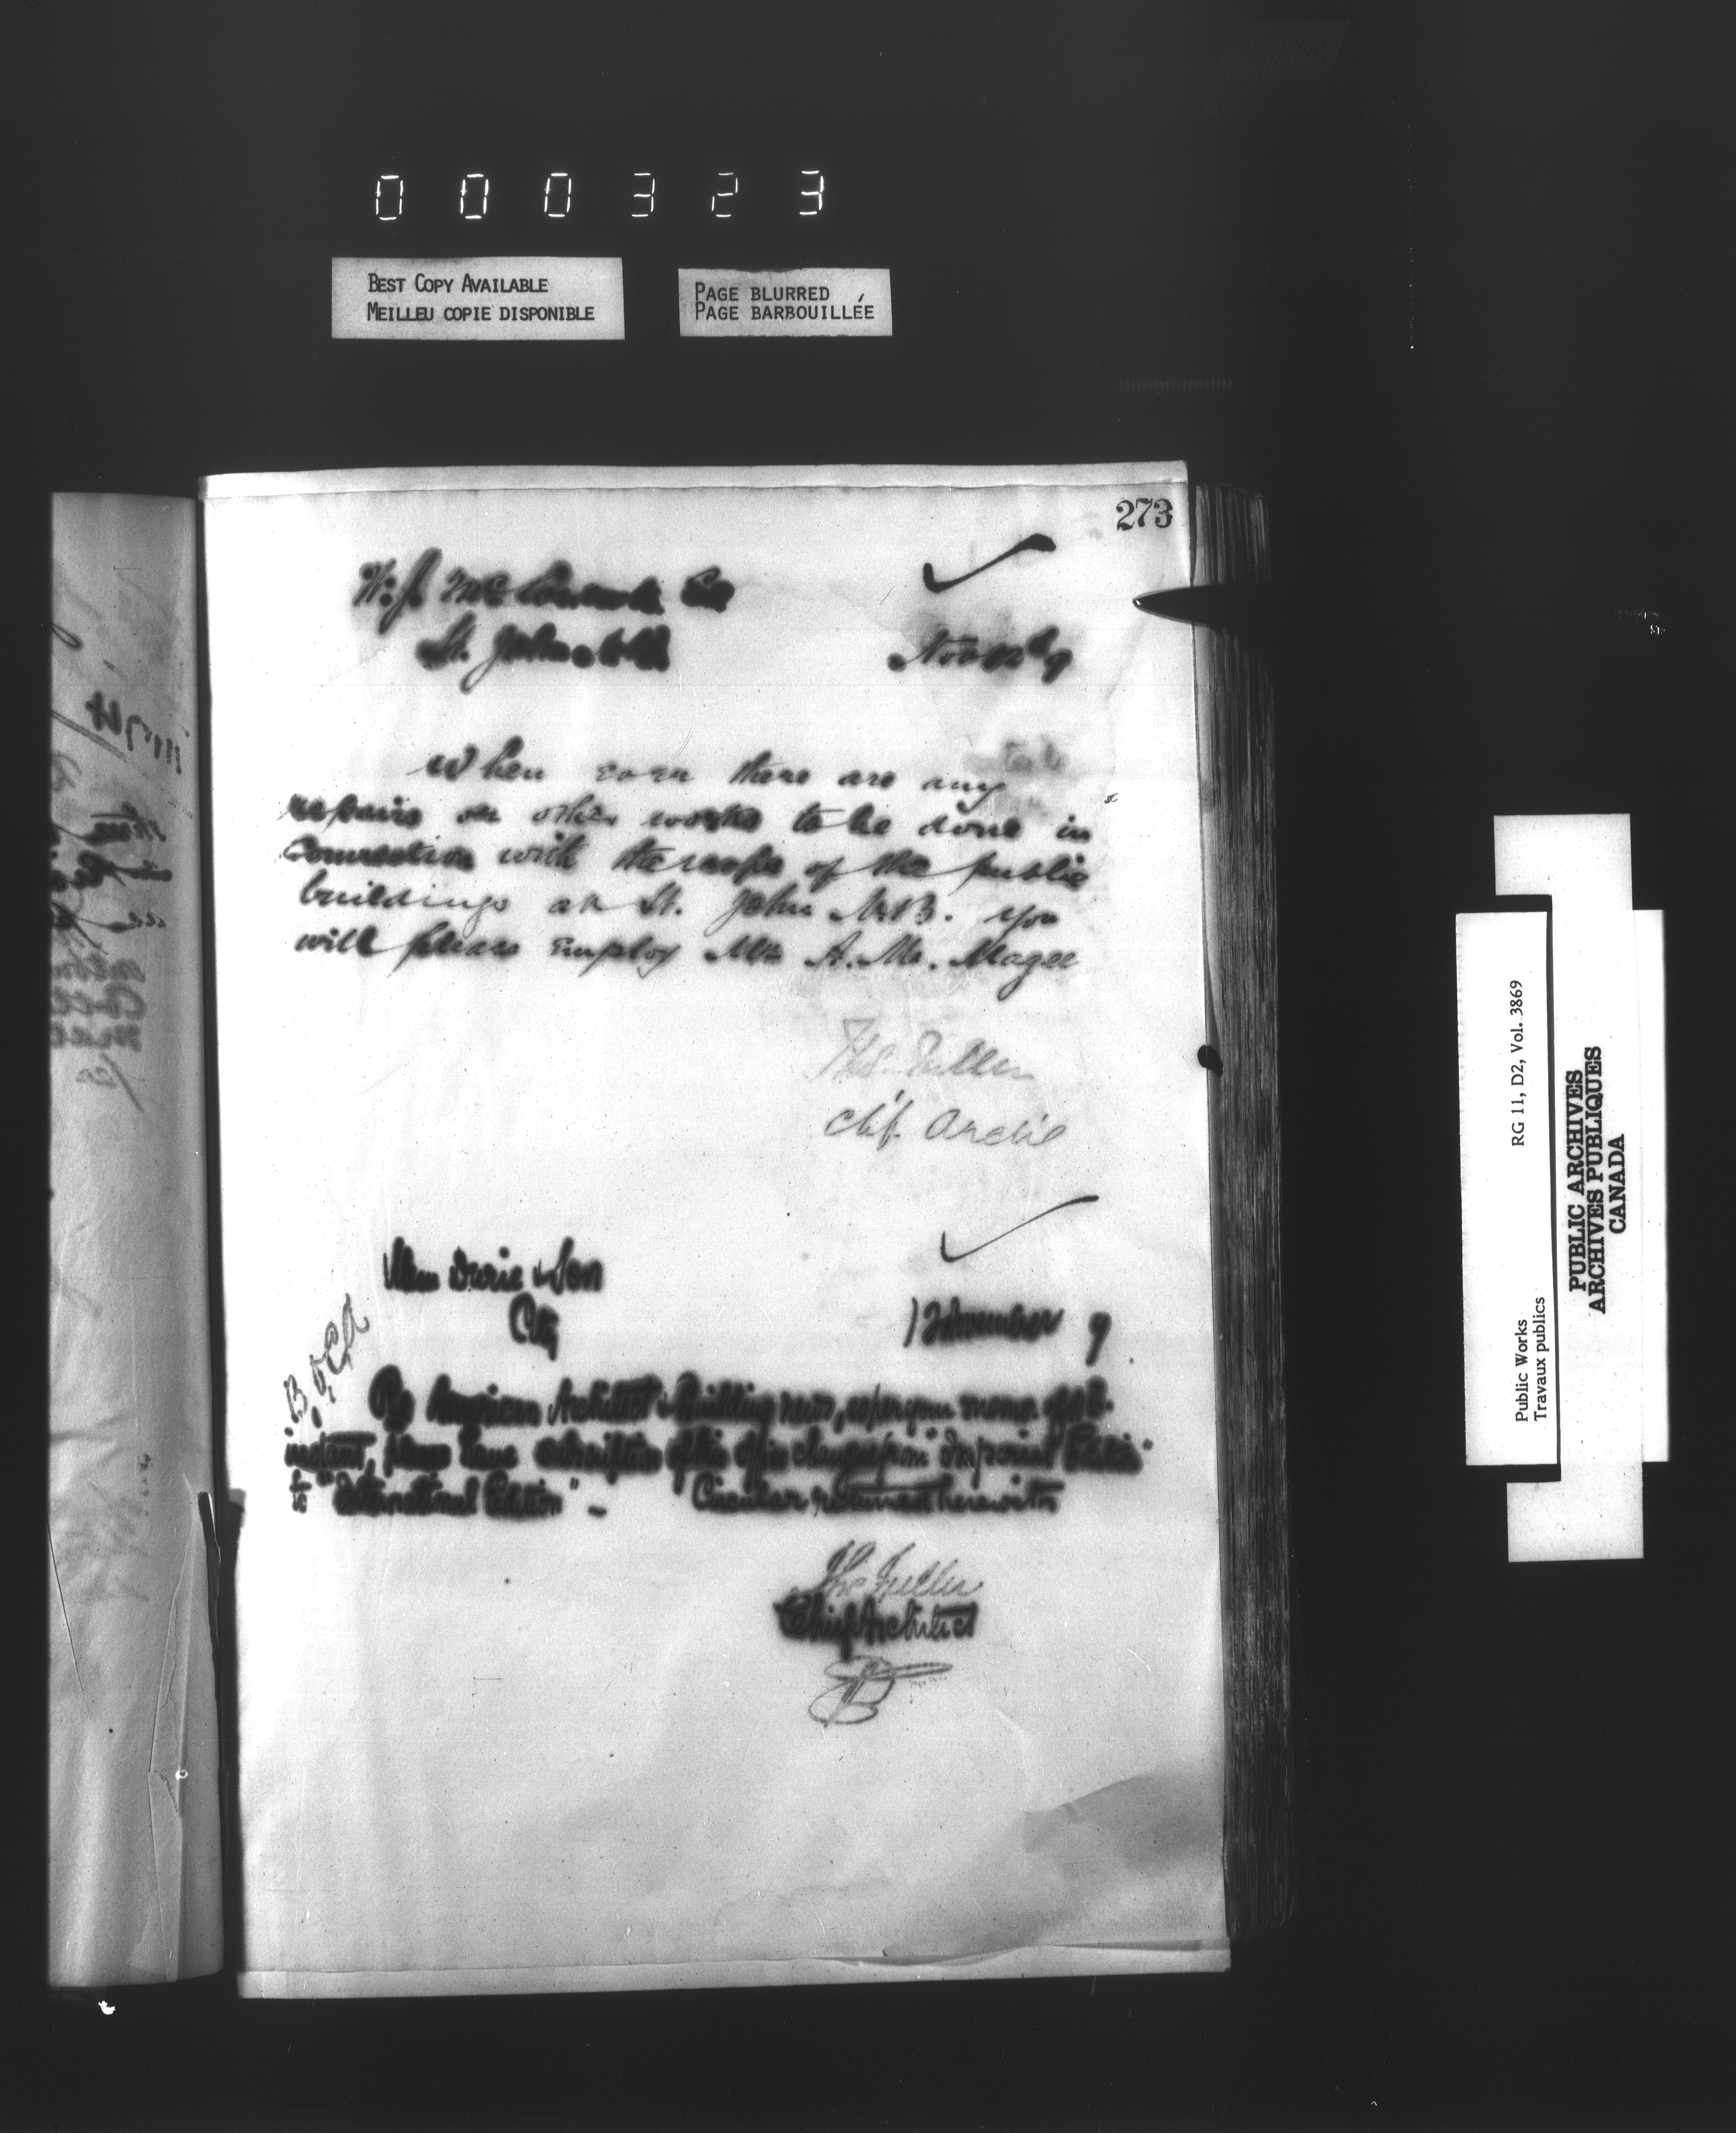 000323
BEST COPY AVAILABLE
MEILLEU COPIE DISPONIBLE
PAGE BLURRED
PAGE BARBOUILLÉE
273
W. J. Mc
St. John N.B.
Nov 12th 9
When ever there are any
repairs or other works to be done in
connection with the roofs of the public
buildings at St. John N.B. you
will please employ Mr. A. Mc. Magee
Thos. Fuller
Chf. Archt
Durie & Son
City
12 November 9
B. of Cd
Re American Architect & Building news, as per your memo. of
instant, please have subscription of this office changed from "Imperial Edition"
to "International Edition" – Circular returned herewith
Thos Fuller
Chief Architect
RG 11, D2, Vol. 3869
Public Works
Travaux publics
PUBLIC ARCHIVES
ARCHIVES PUBLIQUES
CANADA